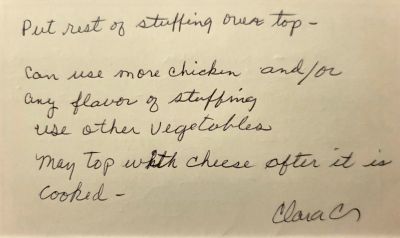 Put rest of stuffing over top -
Can use more chicken and/or
any flavor of stuffing
use other vegetables
May top with cheese after it is
cooked -
Clara C